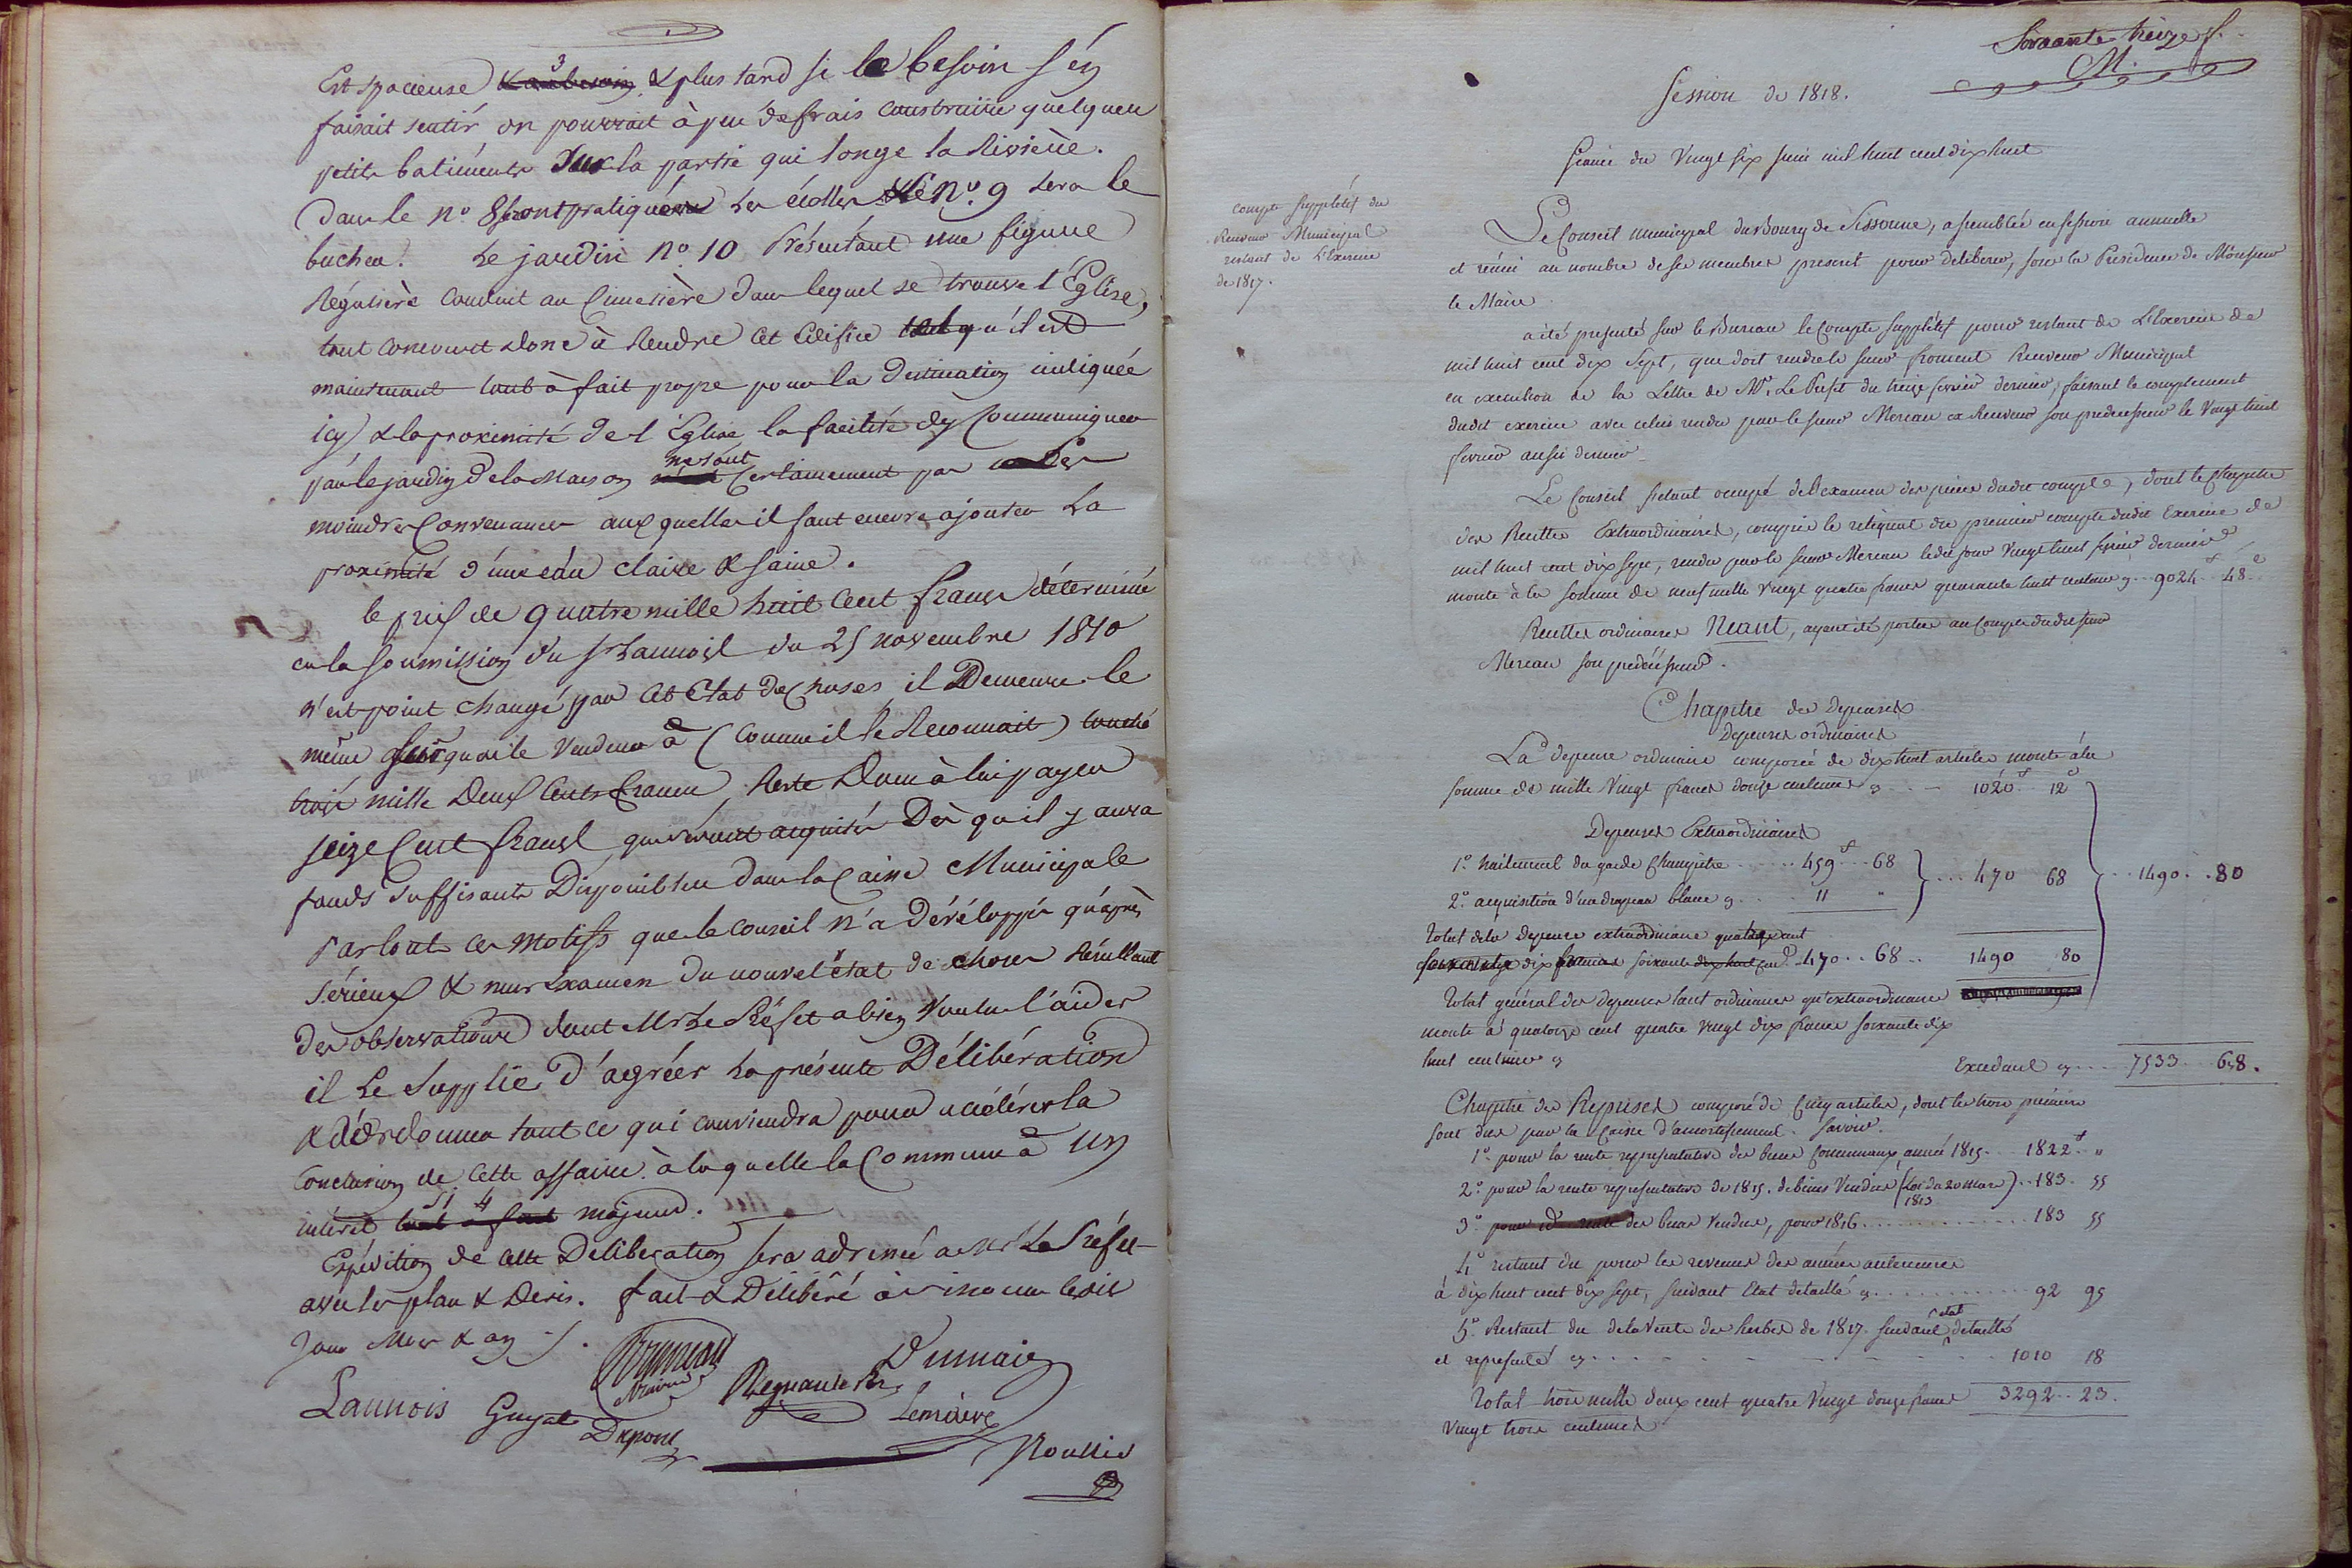 Est spacieuse & plus tard si le besoin s'en
faisait sentir on pourrait à peu de frais construire quelques
petits batiments sur la partie qui longe la Rivière.
Dans le nº 8 seront pratiquées les écolles le Nº. 9 sera le
bucher. Le jardin nº 10 Présentant une figure
Régulière conduit au Cimetière dans lequel se trouve l'Église,
tout concourt donc à Rendre cet édifice tel qu'il est
maintenant tout à fait propre pour la destination indiquée
icy & la proximité de l'Église la facilité d'y Communiquer
par le jardin de la Maison ne sont Certainement pas les
moindres Convenances aux quelles il faut encore ajouter La
proximité d'une eau claire & saine.
le prix de quatre mille huit Cent francs déterminé
en la soumission du Sr Launois du 25 novembre 1810
n'est point changé par cet État de choses, il Demeure le
même sur quoi le Vendeur a (comme il le Reconnait) touché
trois mille Deux Cents francs Reste Donc à lui payer
seize Cent francs qui seront acquités Dès qu'il y aura
fonds suffisants Disponibles dans la Caisse Municipale
Par tout ces motifs que le conseil n'a développés qu'après
sérieux & mur Examen du nouvel état de choses Résultant
Des observations dont Mr Le Préfet a bien Voulu l'aider
il Le Supplie d'agréer la présente Délibération
& d'ordonner tout ce qui conviendra pour accélérer la
Conclusion de cette affaire à laquelle la Commune a un
intérêt majeur.
Expédition de cette Délibération sera adressée à Mr Le Préfet
avec les plan & Devis. fait & Délibéré à Sissonne lesdit
Jour Mois & an
Launois Guyot Dupont Regnault Dumain
Lemaire
Noullie
Soixante treize f.
M.
Session de 1818.
Séance du Vingt six juin mil huit cent dix huit
Compte Supplétif du
Receveur Municipal
restant de L'Exercice
de 1817.
Le Conseil municipal du bourg de Sissonne, assemblée en session annuelle
et réuni au nombre de ses membres prescrit pour délibérer, sous la Présidence de Monsieur
le Maire
a été présenté sur le Bureau le Compte Supplétif pour restant de L'Exercice de
mil huit cent dix Sept, que doit rendre le sieur froment Receveur Municipal
en execution de la Lettre de Mr. Le Prefet du treize fevrier dernier, faisant le complement
dudit exercice avec celui rendu par le sieur Mereau ex Receveur son predecesseur le Vingt huit
fevrier aussi dernier
Le Conseil s'étant occupé de l'examen des pieces dudit compte, dont le Chapitre
des Recettes Extraordinaires, compris le reliquat du premier compte dudit Exercice de
mil huit cent dix sept, rendu par le sieur Mereau ledit jour Vingt huit fevrier dernier
monte à la somme de neuf mille Vingt quatre francs quarante huit centimes cy .. 9024 f 48 c
Recettes ordinaires Néant, ayant été portée au Compte dudit sieur
Mereau son predecesseur.
Chapitre des Depenses
Depenses ordinaires
La depense ordinaire composée de dix huit articles monte à la
somme de mille Vingt francs douze centimes cy ... 1020 f 12 c
Depenses Extraordinaires
1º. traitement du garde Champêtre ...... 459 f .. 68 } ... 470 68 } ... 1490 .. 80
2º. acquisition d'un drapeau blanc cy .... 11 "
Total de la Depense extraordinaire quatre cent
soixante dix francs soixante dix huit cent 470 .. 68 .. 1490 80
Total général des depenses tant ordinaires qu'extraordinaires
monte à quatorze cent quatre Vingt dix francs soixante dix
huit centimes cy
Excedant cy .... 7533 .. 68.
Chapitre des Reprises composé de Cinq articles, dont les trois premiers
sont dus par la Caisse d'amortissement. Savoir.
1º. pour la rente representative des biens Communaux, année 1815 ... 1822 f. "
2º. pour la rente representative de 1815. de biens Vendus (Loi du 20 mars 1813) .. 183. 55
3º. pour id rente des biens Vendus, pour 1816 ............ 183 55
4º. restant du pour les revenus des années anterieures
à dix huit cent dix sept, suivant Etat detaillé cy ............ 92 95
5º. Restant du de la Vente des herbes de 1817. suivant état detaillé
et représenté cy ............ 1010 18
Total trois mille deux cent quatre Vingt douze francs 3292 .. 23.
Vingt trois centimes